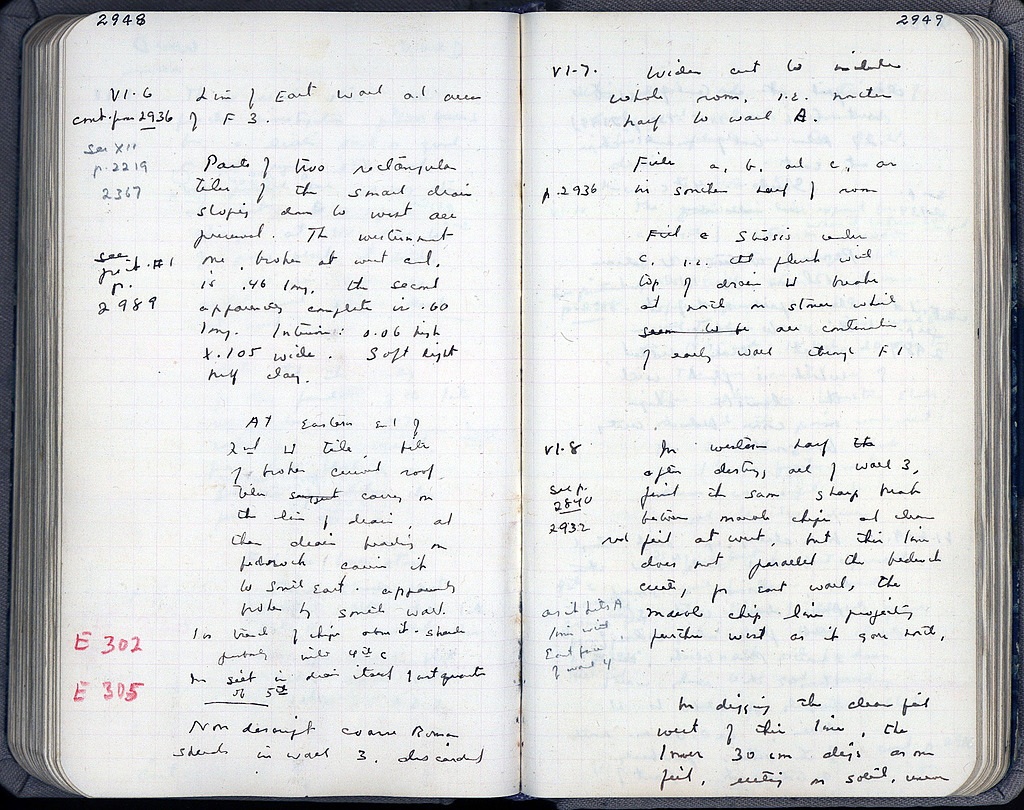 2948
VI.6 Line of East wall at area
cont. from 2936 of F 3.
see XII
p. 2219
2367
Parts of two rectangular
tiles of the small drain
sloping down to west are
preserved. The westernmost
see
p.
2989
one, broken at west end,
is .46 long, the second
apparently complete is .60
long. Interior: 0.06 high
x .105 wide. Soft light
buff clay.
At Eastern end of
2nd tile, bits
of broken curved roof
tiles suggest carries on
the line of drain, and
then drain on
bedrock carries it
to South East. apparently
broken by south wall.
E 302
of chips above it - sherds
probably into 4th c
E 305
In silt in drain itself last quarter
of 5th
Non descript coarse Roman
sherds in wall 3, discarded
2949
VI.7. Widen cut to include
whole room, i.e. northern
half to wall A.
Fills a, b, and c, are
p. 2936
in southern half of room
Fill c Stosis under
c. i.e. flush with
top of drain
at north on stones which
seem to be are continuation
of early wall through F 1.
VI.8 In western half the
after destroying all of wall 3,
see p.
2840
2932
find the same sharp break
between marble chips and clean
red fill at west, but this line
does not parallel the bedrock
cuts, for East wall, the
as it hits A
line with
East face
of wall 4
marble chip line projecting
further west as it goes north,
In digging the clean fill
west of this line, the
lower 30 cm
fill, resting on solid,